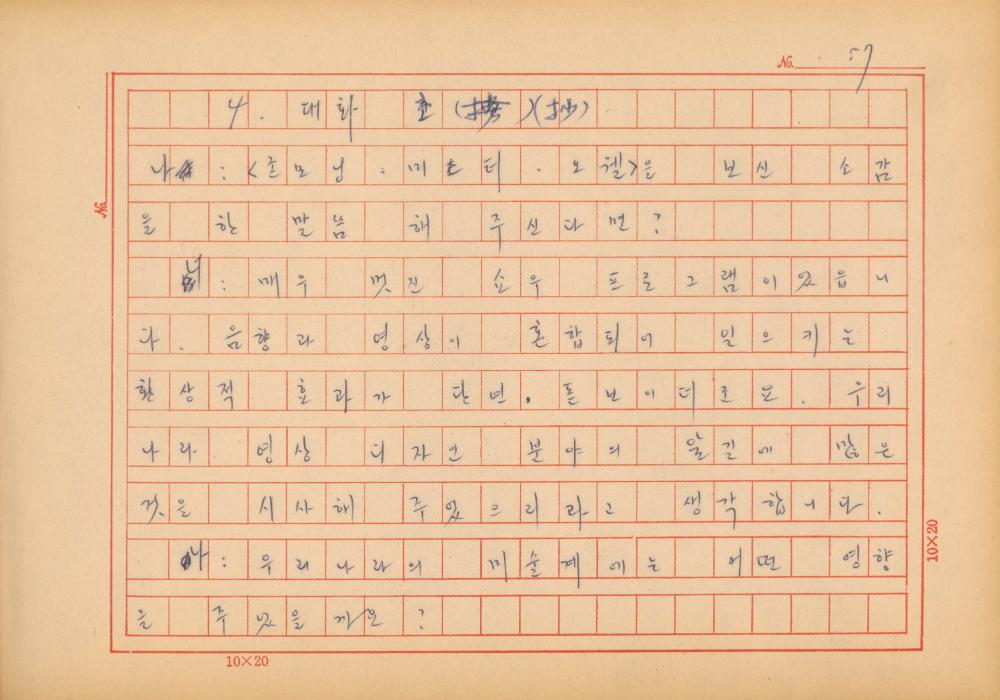 No. 57
4. 대화 초 (抄)
나 : <굿모닝 . 미스터 . 오웰>을 보신 소감
을 한 말씀 해 주신다면?
너 : 매우 멋진 쇼우 프로그램이었읍니
다. 음향과 영상이 혼합되어 일으키는
환상적 효과가 단연. 톱 보이더군요. 우리
나라 영상 디자인 분야의 앞길에 많은
것을 시사해 주었으리라고 생각합니다.
나 : 우리나라의 미술계에는 어떤 영향
을 주었을까요?
No.
10×20
10×20